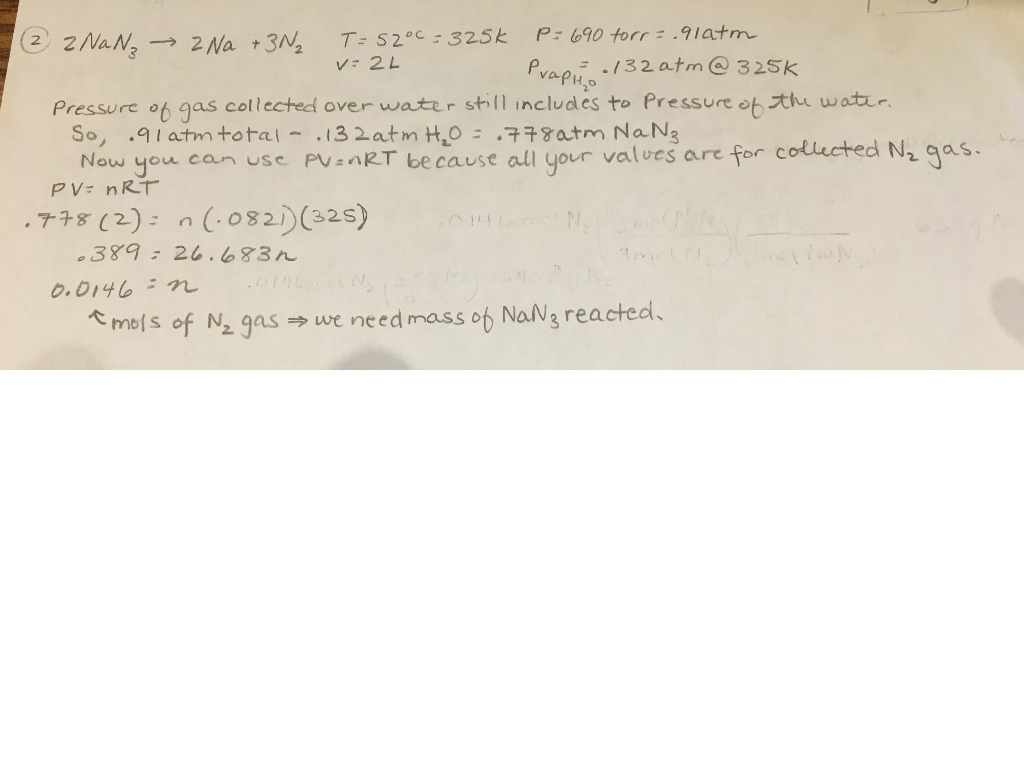 2 2NaN₃ → 2Na + 3N₂ T= 52°C = 325K P= 690 torr = .91atm
V= 2L PvapH₂O = .132atm @ 325K
Pressure of gas collected over water still includes to Pressure of the water.
So, .91atm total - .132atm H₂O = .778atm NaN₃
Now you can use PV=nRT because all your values are for collected N₂ gas.
PV= nRT
.778(2)= n(.0821)(325)
.389 = 26.683n
0.0146 = n
↑ mols of N₂ gas ⇒ we need mass of NaN₃ reacted.